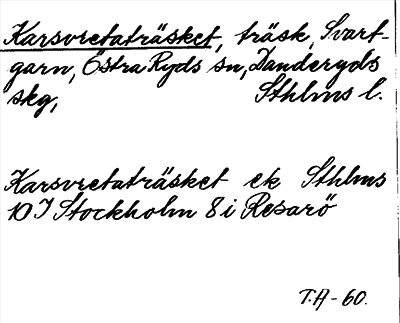 Karsvretaträsket, träsk, Svart-
garn, Östra Ryds sn, Danderyds
skg, Sthlms l.
Karsvretaträsket ek Sthlms
10 I Stockholm 8 i Resarö
T.A - 60.